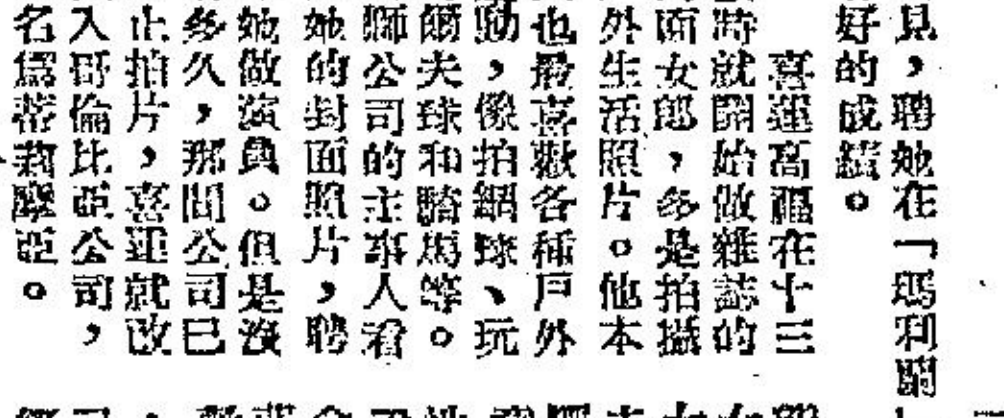 見，聘她在「瑪利
好的成績。
喜運高福在十三
時就開始做雜誌的
面女郎，多是拍攝
外生活照片。他本
也最喜歡各種戶外
動，像拍網球、玩
爾夫球和騎馬等。
獅公司的主事人看
她的封面照片，聘
她做演員。但是沒
多久，那間公司已
止拍片，喜運就改
入哥倫比亞公司，
名為蒂莉摩亞。